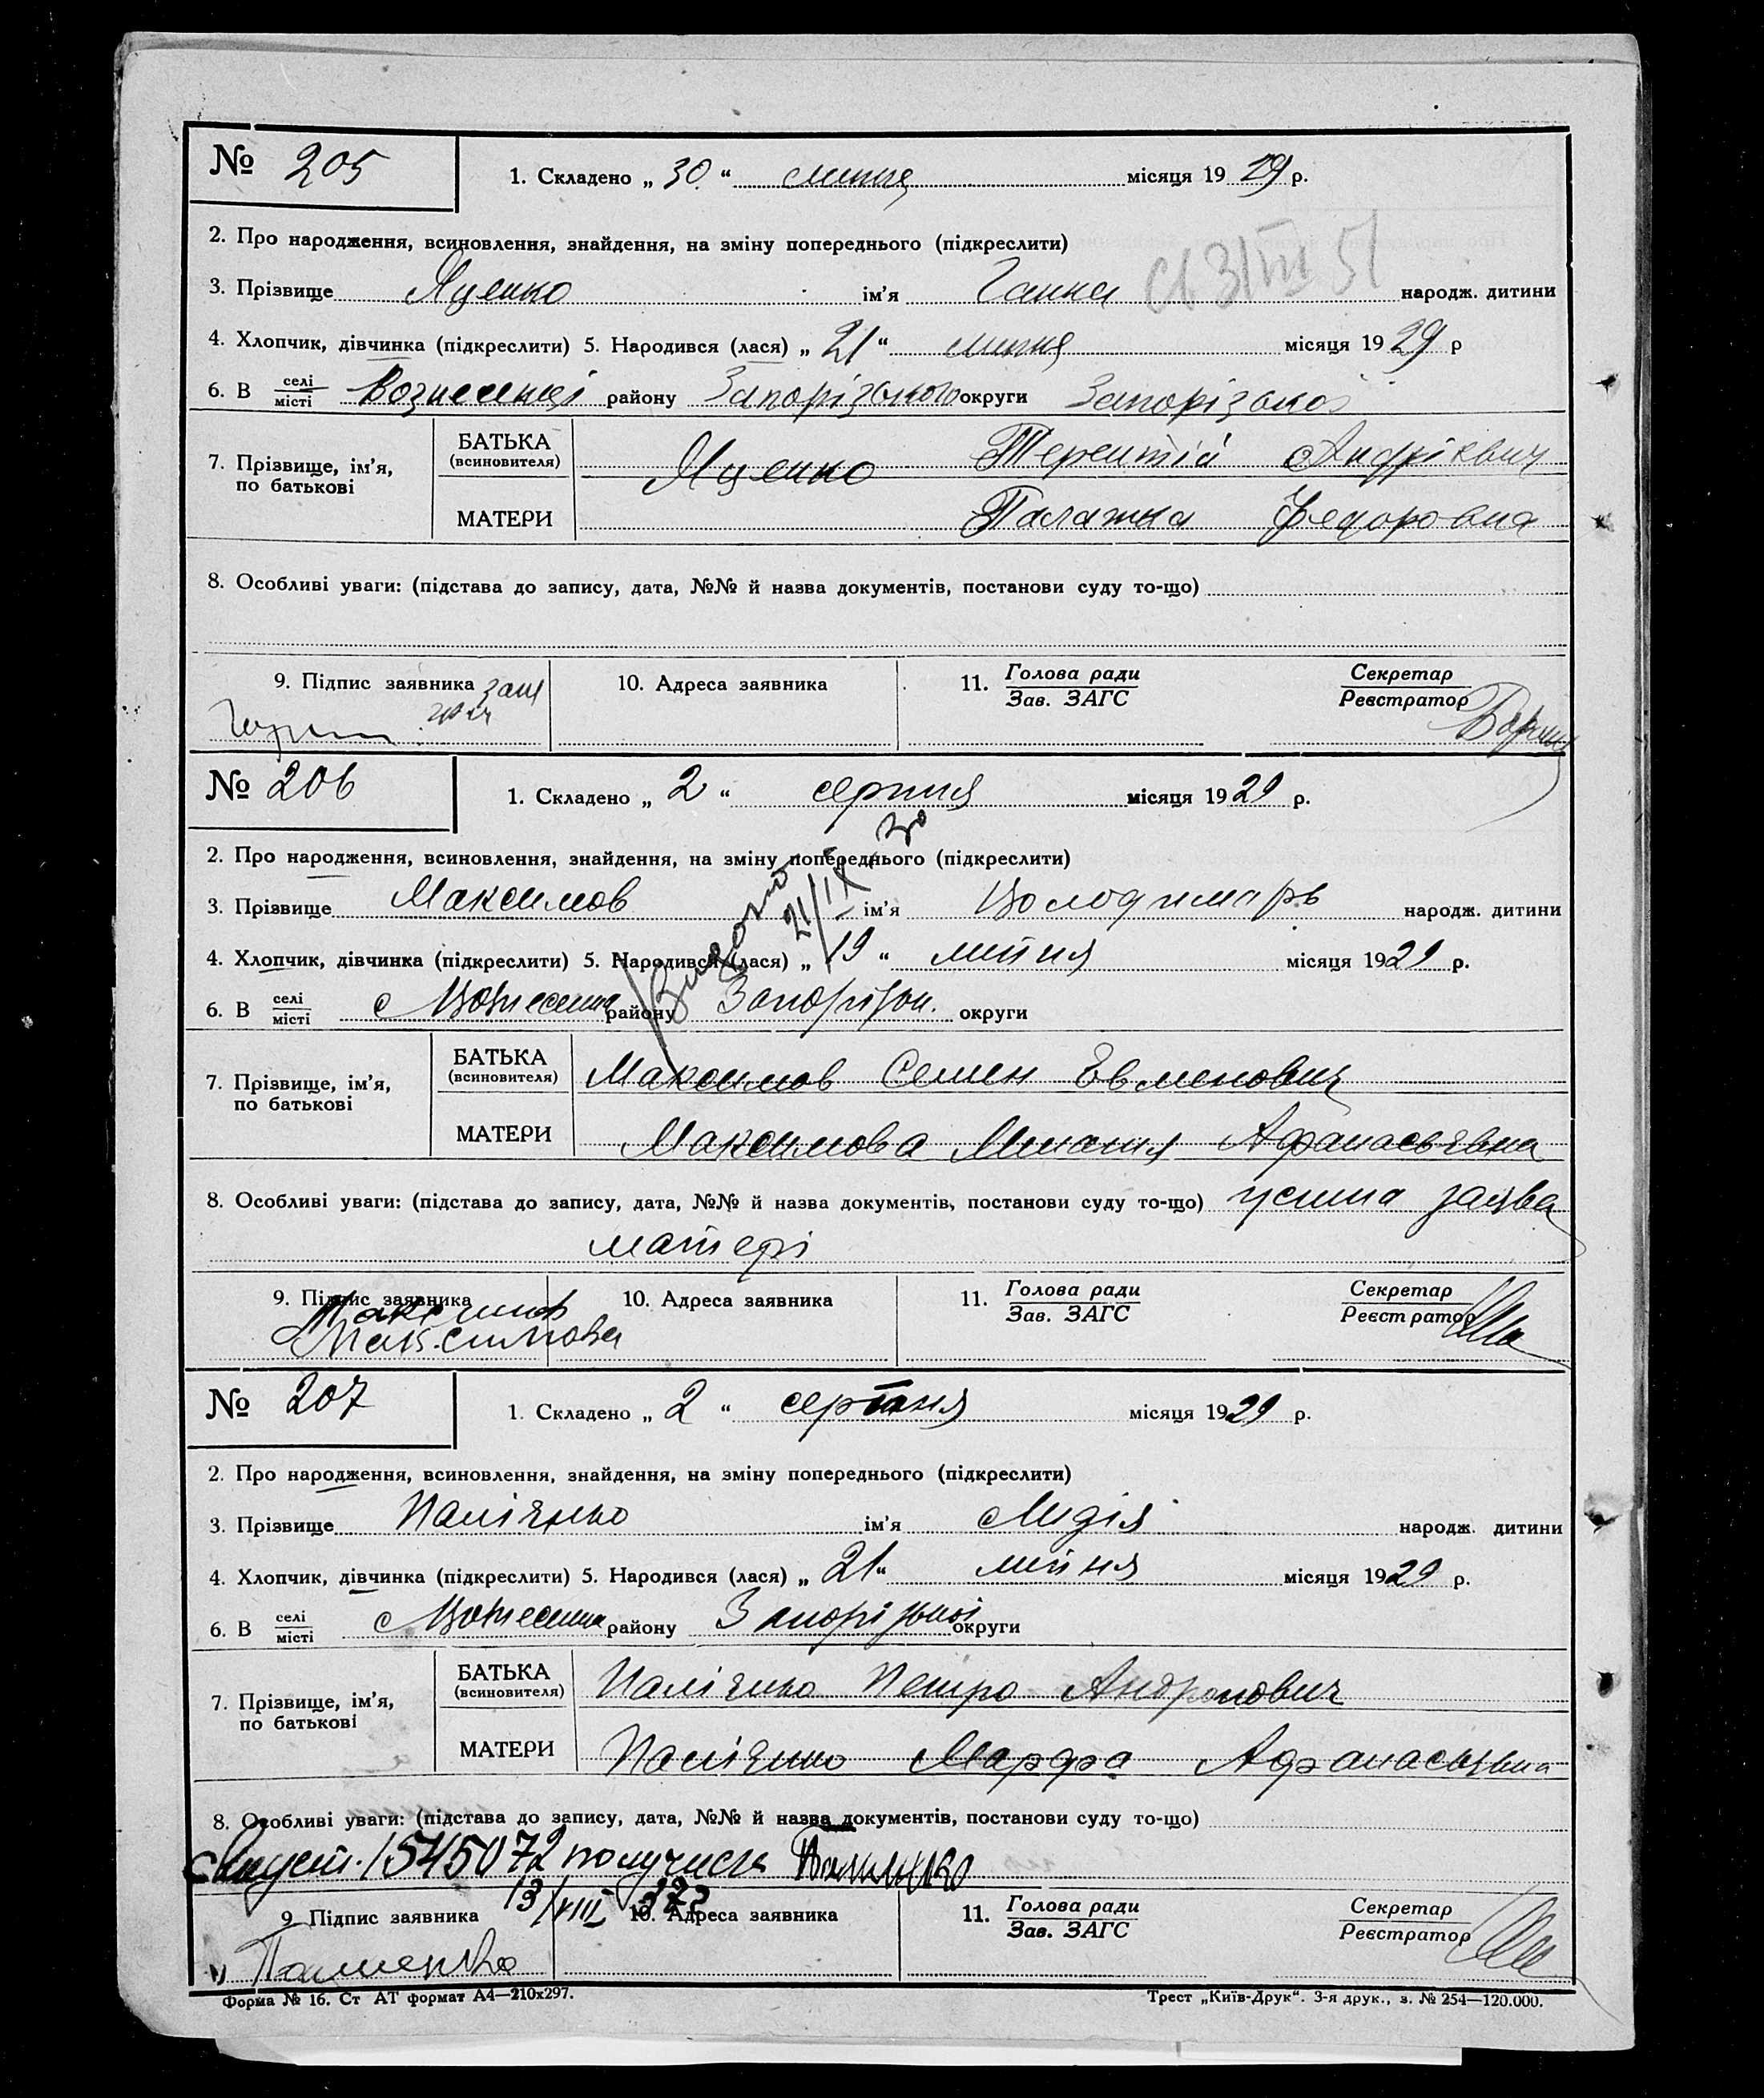 № 205
1. Складено „ 30 “ липня місяця 19 29 р.
2. Про народження, всиновлення, знайдення, на зміну попереднього (підкреслити)
св 3/VIII 51
3. Прізвище Яценко ім’я Ганна народж. дитини
4. Хлопчик, дівчинка (підкреслити) 5. Народився (лася) „ 21 “ липня місяця 19 29 р
6. В селі місті Вознесенці району Запорізького округи Запорізької
7. Прізвище, ім’я, по батькові
БАТЬКА (всиновителя) Яценко Терентій Андрієвич
МАТЕРИ Палажка Федоровна
8. Особливі уваги: (підстава до запису, дата, №№ й назва документів, постанови суду то-що)
9. Підпис заявника 10. Адреса заявника 11. Голова ради Зав. ЗАГС Секретар Реєстратор
№ 206
1. Складено „ 2 “ серпня місяця 19 29 р.
2. Про народження, всиновлення, знайдення, на зміну попереднього (підкреслити)
Видано 21/IX 30
3. Прізвище Максимов ім’я Володимарь народж. дитини
4. Хлопчик, дівчинка (підкреслити) 5. Народився (лася) „ 19 “ липня місяця 19 29 р.
6. В селі місті с Вознесенка району Запорізьк. округи
7. Прізвище, ім’я, по батькові
БАТЬКА (всиновителя) Максимов Семен Євменович
МАТЕРИ Максимова Афанасьевна
8. Особливі уваги: (підстава до запису, дата, №№ й назва документів, постанови суду то-що) усина заява
матері
9. Підпис заявника 10. Адреса заявника 11. Голова ради Зав. ЗАГС Секретар Реєстратор
Максимов
Максимова
№ 207
1. Складено „ 2 “ серпня місяця 19 29 р.
2. Про народження, всиновлення, знайдення, на зміну попереднього (підкреслити)
3. Прізвище Палієнко ім’я Лидія народж. дитини
4. Хлопчик, дівчинка (підкреслити) 5. Народився (лася) „ 21 “ липня місяця 19 29 р.
6. В селі місті с Вознесенка району Запорізької округи
7. Прізвище, ім’я, по батькові
БАТЬКА (всиновителя) Палієнко Петро Андронович
МАТЕРИ Палієнко Марфа Афанасьевна
8. Особливі уваги: (підстава до запису, дата, №№ й назва документів, постанови суду то-що)
1545072 получила
13/VIII
9. Підпис заявника 10. Адреса заявника 11. Голова ради Зав. ЗАГС Секретар Реєстратор
Форма № 16. Ст АТ формат А4—210х297. Трест „Київ-Друк“. 3-я друк., з. № 254—120.000.